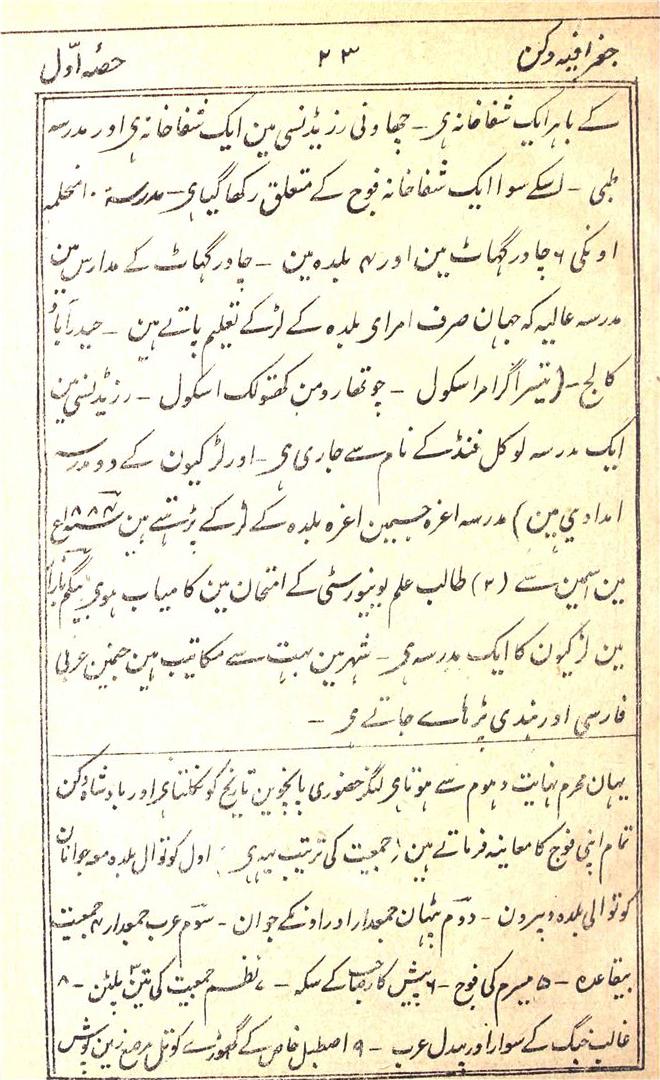 جغرافیہ دکن ۲۳ حصّہ اوّل
کے باہر ایک شفاخانہ ہی ۔ چھاونی رزیڈنسی مین ایک شفاخانہ ہی اور مدرسہ
طبی ۔ اسکے سوا ایک شفاخانہ فوج کے متعلق رکھا گیا ہی ۔ مدرسۃ ۱۰ منجملہ
اونکی ۶ چادر گہاٹ مین اور ۴ بلدہ مین ۔ چادر گہاٹ کے مدارس مین
مدرسہ عالیہ کہ جہان صرف امرای بلدہ کے لڑکے تعلیم پاتے ہین ۔ حیدرآباد
کالج ۔ ( تیسرا گرامر اسکول ۔ چوتھا رومن کتھولک اسکول ۔ رزیڈنسی مین
ایک مدرسہ لوکل فنڈ کے نام سے جاری ہی ۔ اور لڑکیون کے دو مدرسہ
امدادی ہین ) مدرسہ اعزہ جسمین اعزہ بلدہ کے لڑکے پڑہتے ہین ۱۸۸۴ء
مین اسمین سے (۲) طالب علم یونیورسٹی کے امتحان مین کامیاب ہوی بیگم بازار
مین لڑکیون کا ایک مدرسہ ہی ۔ شہر مین بہت سے مکاتیب ہین جنمین عربی
فارسی اور ہندی پڑہاے جاتے ہی ۔
یہان محرم نہایت دہوم سے ہوتا ہی لنگر حضوری پانچوین تاریخ کو نکلتا ہی اور بادشاہ دکن
تمام اپنی فوج کا معاینہ فرماتے ہین (جمعیت کی ترتیب یہہ ہی : اول کوتوال بلدہ معہ جوانان
کوتوالی بلدہ و بیرون ۔ دوم پٹہان جمعدار اور اونکے جوان ۔ سوم عرب جمعدار ۴ جمعیت
بیقاعدہ ۔ ۵ میسرم کی فوج ۔ ۶ پیش کار صاحب کے سکہ ۔ ۷ نظم جمعیت کی تین ۳ پلٹن ۔ ۸
غالب جنگ کے سوار اور پیدل عرب ۔ ۹ اصطبل خاص کے گھوڑے کوتل مرصع زین پوش